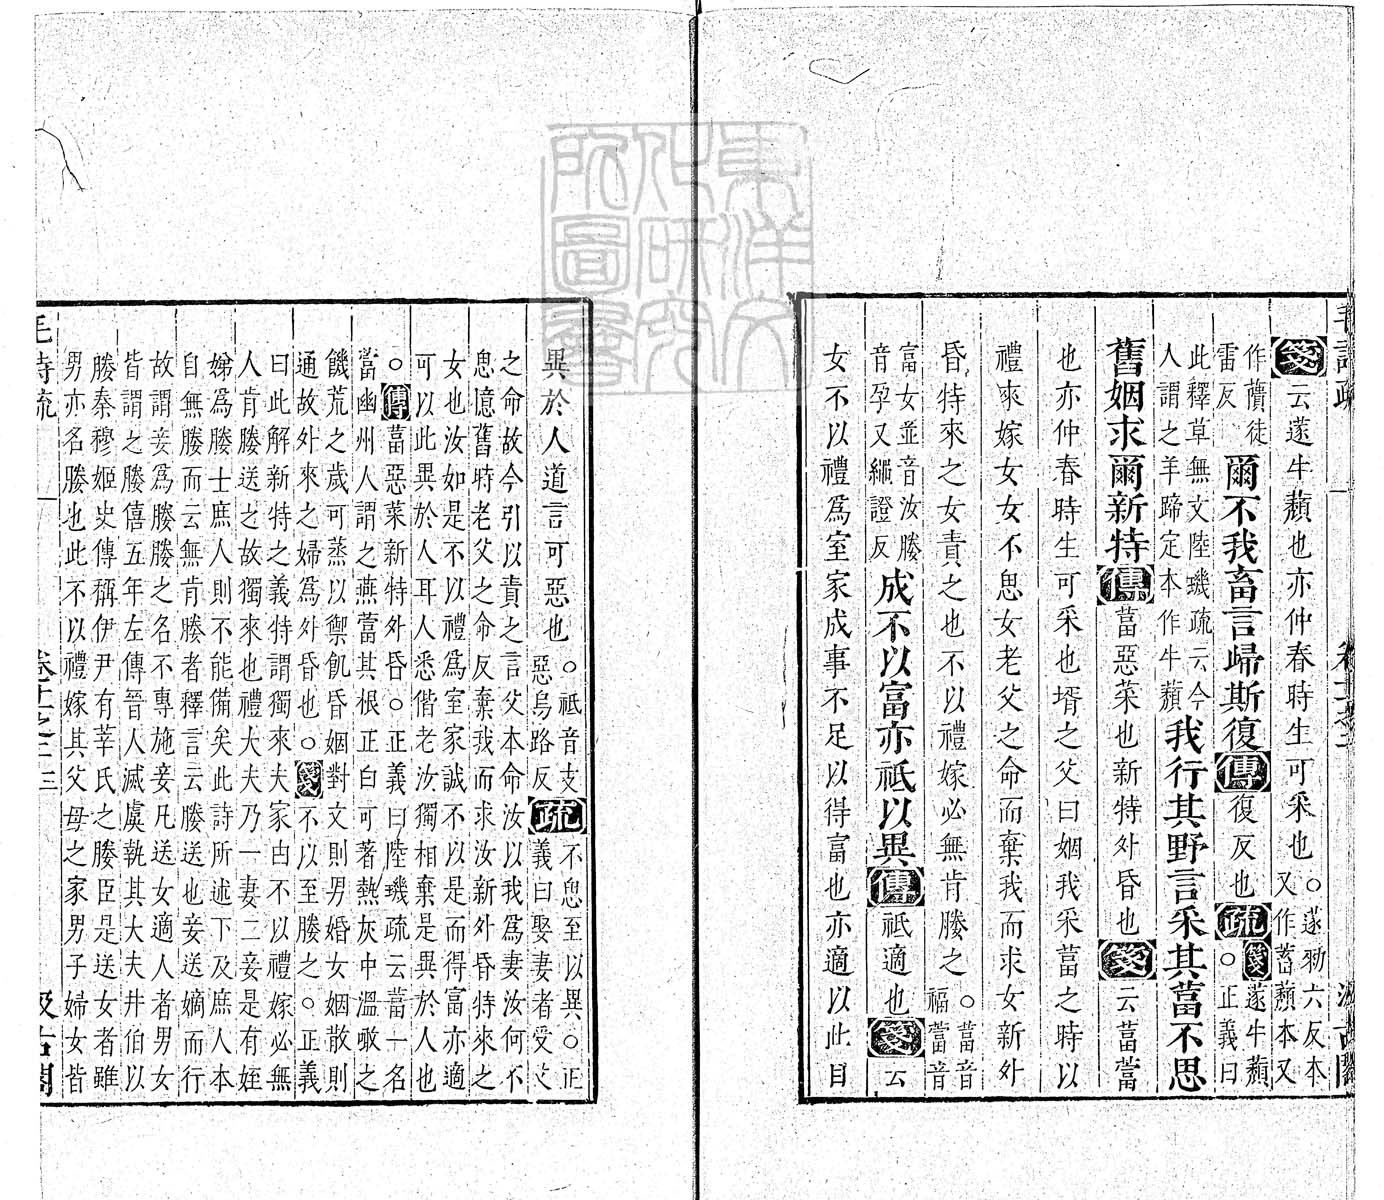 毛詩疏 卷十一之二 汲古閣
箋云蓫牛蘈也亦仲春時生可采也○蓫勑六反本
又作蓄蘈本又
作藬徒
雷反爾不我畜言歸斯復傳復反也疏箋蓫牛蘈
○正義曰
此釋草無文陸璣疏云今
人謂之羊蹄定本作牛蘈我行其野言采其葍不思
舊姻求爾新特傳葍惡菜也新特外昏也箋云葍當
也亦仲春時生可采也壻之父曰姻我采葍之時以
禮來嫁女女不思女老父之命而棄我而求女新外
昏特來之女責之也不以禮嫁必無肯媵之○葍音
福葍音
富女並音汝媵
音孕又繩證反成不以富亦祗以異傳祗適也箋云
女不以禮爲室家成事不足以得富也亦適以此自
異於人道言可惡也○祗音支
惡烏路反疏不思至以異○正
義曰娶妻者受父
之命故今引以責之言父本命汝以我爲妻汝何不
思憶舊時老父之命反棄我而求汝新外昏特來之
女也汝如是不以禮爲室家誠不以是而得富亦適
可以此異於人耳人悉偕老汝獨相棄是異於人也
○傳葍惡菜新特外昏○正義曰陸璣疏云葍一名
葍幽州人謂之燕葍其根正白可著熱灰中溫噉之
饑荒之歲可蒸以禦飢昏姻對文則男婚女姻散則
通故外來之婦爲外昏也○箋不以至媵之○正義
曰此解新特之義特謂獨來夫家由不以禮嫁必無
人肯媵送之故獨來也禮大夫乃一妻二妾是有姪
娣爲媵士庶人則不能備矣此詩所述下及庶人本
自無媵而云無肯媵者釋言云媵送也妾送嫡而行
故謂妾爲媵媵之名不專施妾凡送女適人者男女
皆謂之媵僖五年左傳晉人滅虞執其大夫井伯以
媵秦穆姬史傳稱伊尹有莘氏之媵臣是送女者雖
男亦名媵也此不以禮嫁其父母之家男子婦女皆
毛詩疏 卷十一之二 三 汲古閣
東洋文化研究所圖書